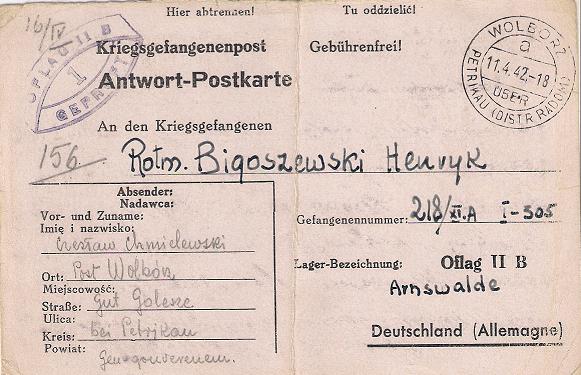 Hier abtrennen! Tu oddzielić!
16/IV
OFLAG II B
1
GEPRÜFT
Kriegsgefangenenpost Gebührenfrei!
Antwort-Postkarte
WOLBORZ
a
11.4.42.-18
ÜBER
PETRIKAU (DISTR. RADOM)
An den Kriegsgefangenen
156
Rotm. Bigoszewski Henryk
Absender:
Nadawca:
Vor- und Zuname:
Imię i nazwisko:
Czesław Chmielewski
Ort: Post Wolbórz
Miejscowość:
Straße: Gut Golesze
Ulica:
Kreis: bei Petrikau
Powiat:
Gen-gouvernem.
Gefangenennummer: 218/XI.A I-505
Lager-Bezeichnung: Oflag II B
Arnswalde
Deutschland (Allemagne)